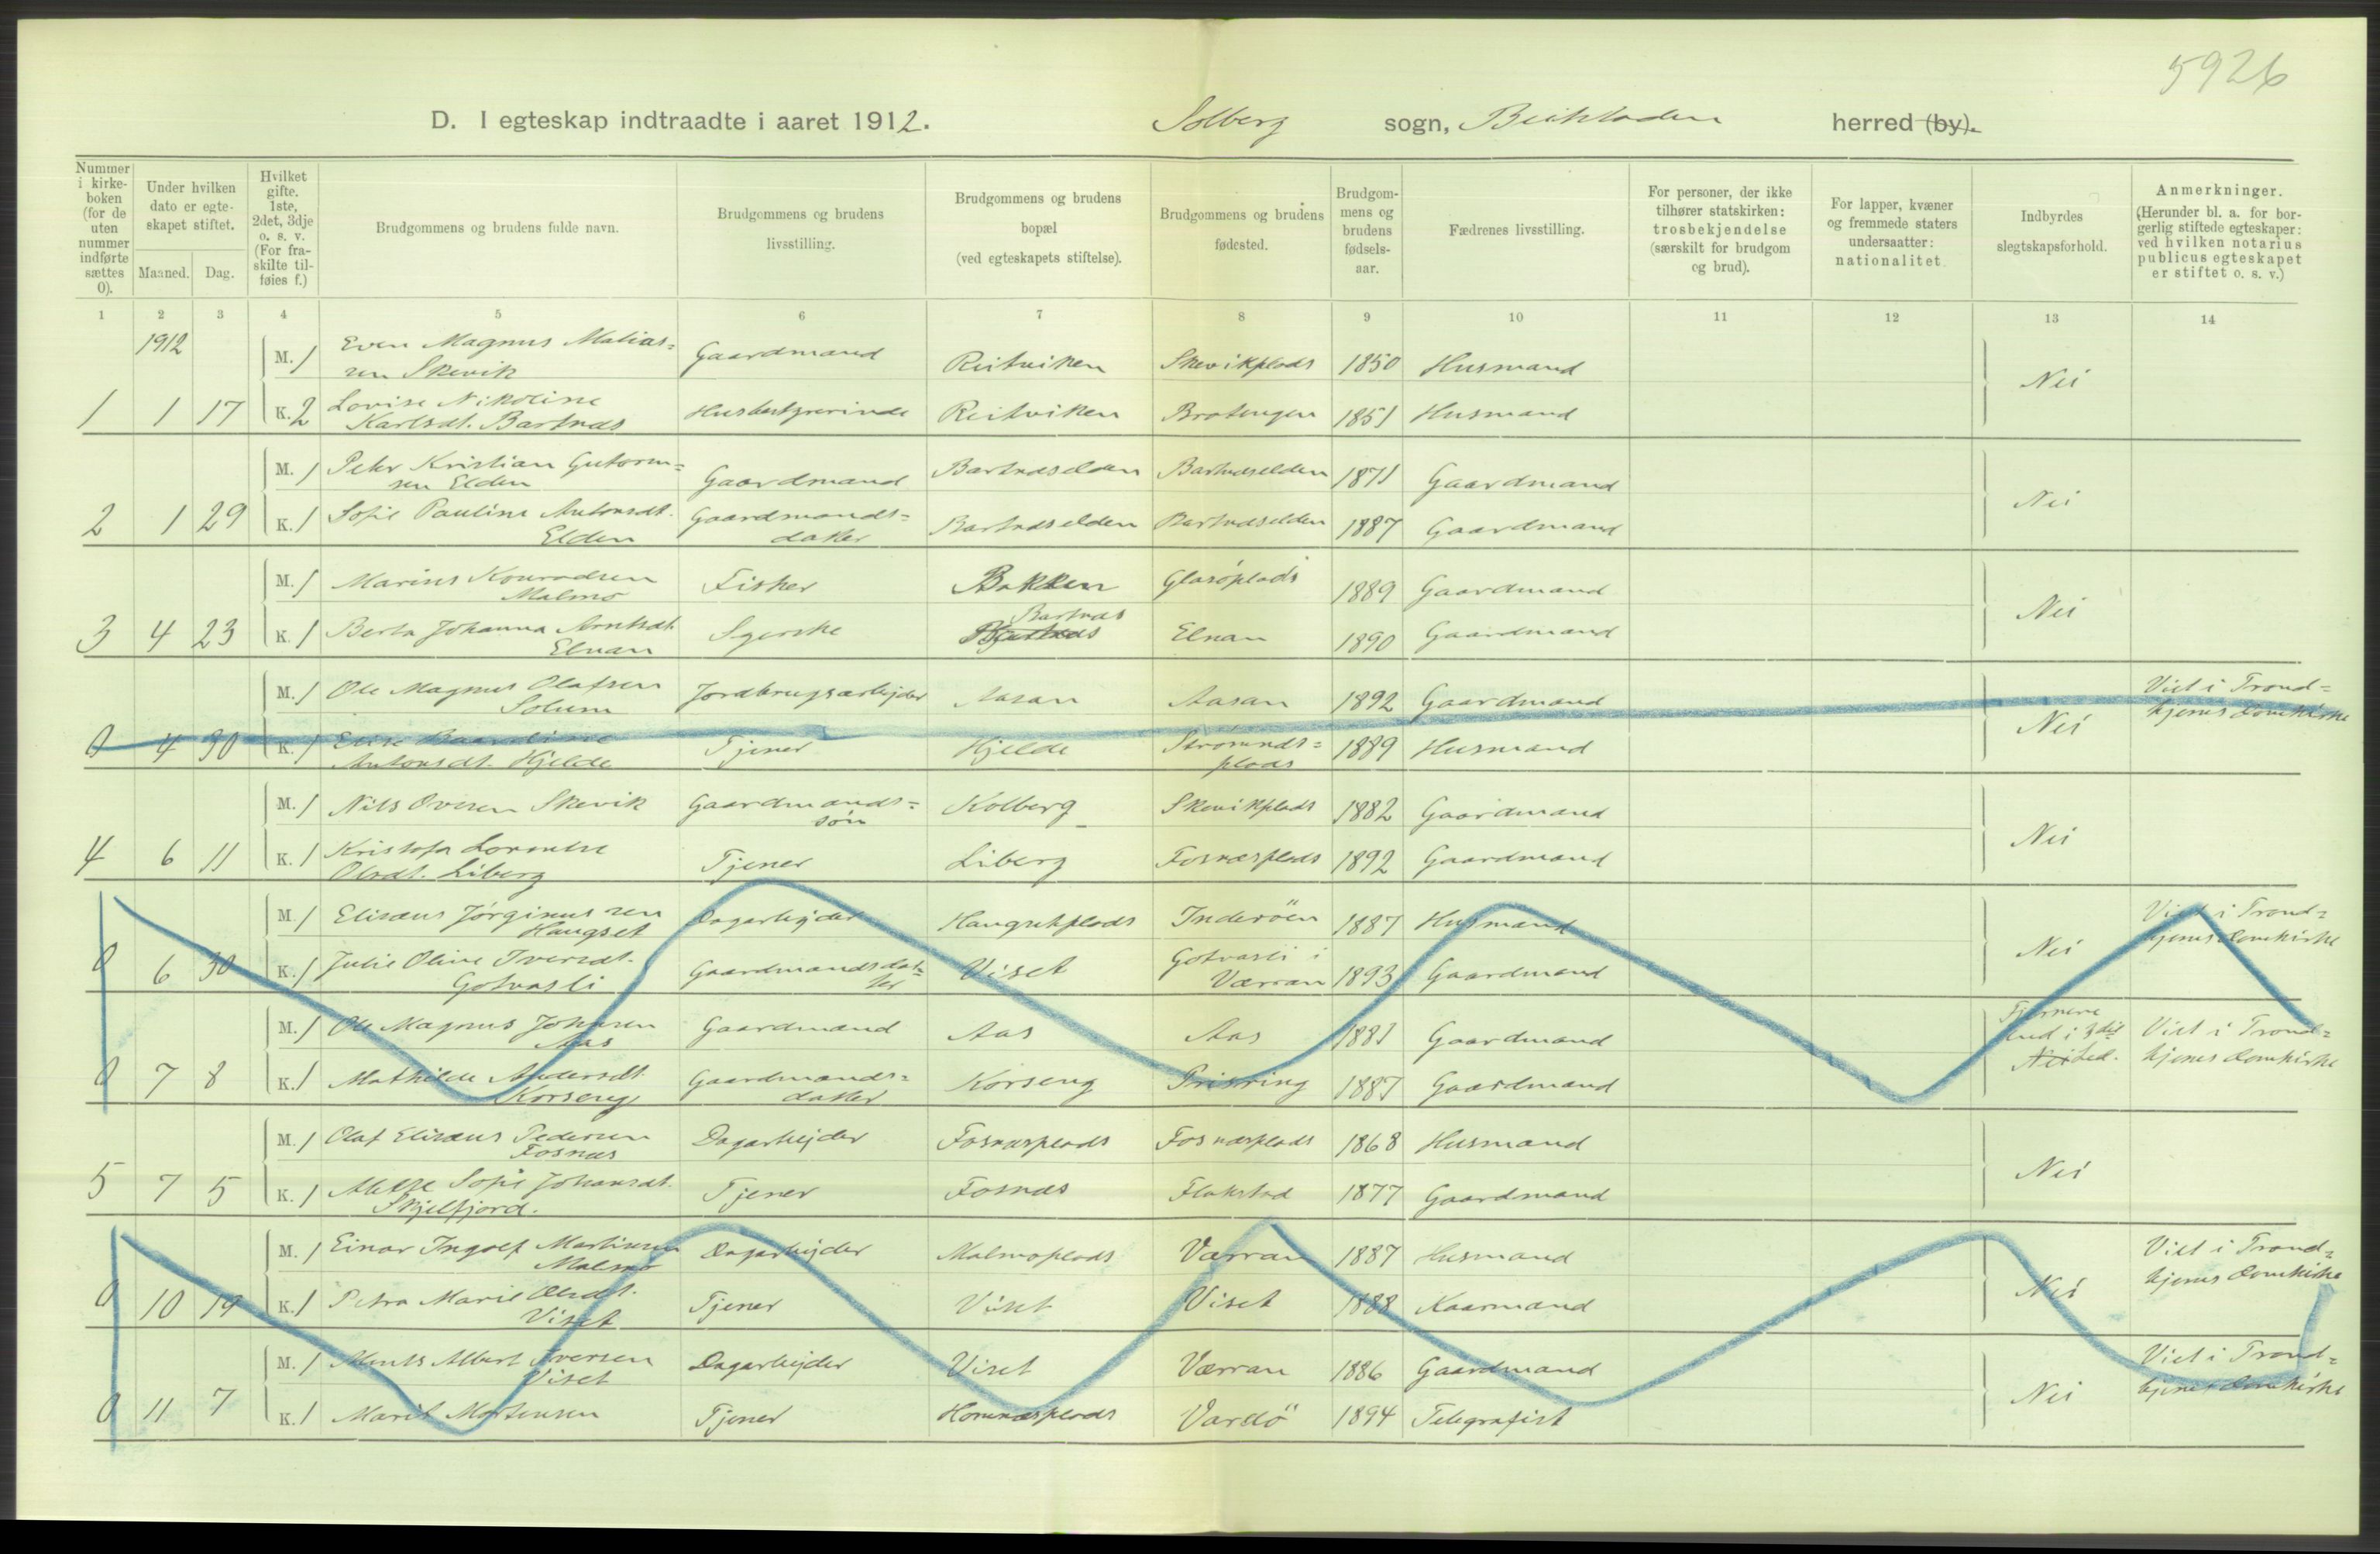 5926
D. I egteskap indtraadte i aaret 1912. Solberg sogn, herred (by).
Nummer i kirkeboken (for de uten nummer indførte sættes 0).
Under hvilken dato er egteskapet stiftet.
Maaned. Dag.
Hvilket gifte. 1ste, 2det, 3dje o. s. v. (For fraskilte tilføies f.)
Brudgommens og brudens fulde navn.
Brudgommens og brudens livsstilling.
Brudgommens og brudens bopæl (ved egteskapets stiftelse).
Brudgommens og brudens fødested.
Brudgommens og brudens fødselsaar.
Fædrenes livsstilling.
For personer, der ikke tilhører statskirken: trosbekjendelse (særskilt for brudgom og brud).
For lapper, kvæner og fremmede staters undersaatter: nationalitet.
Indbyrdes slegtskapsforhold.
Anmerkninger. (Herunder bl. a. for borgerlig stiftede egteskaper: ved hvilken notarius publicus egteskapet er stiftet o. s. v.)
1 2 3 4 5 6 7 8 9 10 11 12 13 14
1912
M. 1 Even Magnus Matias=
sen Skevik Gaardmand Reitviken Skevikplads 1850 Husmand Nei
1 1 17 K. 2 Lovise Nikoline
Karlsdt. Bartnæs Husbestyrerinde Reitviken Bratengen 1851 Husmand
M. 1 Peter Kristian Gutorm=
sen Elden Gaardmand Bartnæselden Bartnæselden 1871 Gaardmand Nei
2 1 29 K. 1 Sofie Pauline Antonsdt.
Elden Gaardmands=
datter Bartnæselden Bartnæselden 1887 Gaardmand
M. 1 Marius Konradsen
Malmo Fisker Bakken Glasöplads 1889 Gaardmand Nei
3 4 23 K. 1 Berta Johanna Arntsdt.
Elnan Syerske Bartnæs Elnan 1890 Gaardmand
M. 1 Ole Magnus Olafsen
Solum Jordbrugsarbejder Aasan Aasan 1892 Gaardmand Nei Viet i Trond=
hjems Domkirke
0 4 30 K. 1 Elise Baardine
Antonsdt. Hjelde Tjener Hjelde Strömnæs=
plads 1889 Husmand
M. 1 Nils Ovesen Skevik Gaardmands=
sön Kolberg Skevikplads 1882 Gaardmand Nei
4 6 11 K. 1 Kristofa Lorentse
Olsdt. Liberg Tjener Liberg Fosnæsplads 1892 Gaardmand
M. 1 Elisæus Jörginussen
Haugset Dagarbejder Haugsetplads Inderöen 1887 Husmand Nei Viet i Trond=
hjems Domkirke
0 6 30 K. 1 Julie Oline Iversdt.
Gotvasli Gaardmandsdat=
ter Viset Gotvasli i
Værran 1893 Gaardmand
M. 1 Ole Magnus Johnsen
Aas Gaardmand Aas Aas 1881 Gaardmand Fjernere
end i 3die
Nei Led. Viet i Trond=
hjems Domkirke
0 7 8 K. 1 Mathilde Andersdt.
Korseng Gaardmands=
datter Korseng 1887 Gaardmand
M. 1 Olaf Elisæus Pedersen
Fosnæs Dagarbejder Fosnæsplads Fosnæsplads 1868 Husmand Nei
5 7 5 K. 1 Sofie Johansdt.
Skjelfjord. Tjener Fosnæs Flakstad 1877 Gaardmand
M. 1 Einar Ingolf Martinsen
Malmo Dagarbejder Malmoplads Værran 1887 Husmand Nei Viet i Trond=
hjems Domkirke
0 10 19 K. 1 Petra Marie Olsdt.
Viset Tjener Viset Viset 1888 Kaarmand
M. 1 Albert Iversen
Viset Dagarbejder Viset Værran 1886 Gaardmand Nei Viet i Trond=
hjems Domkirke
0 11 7 K. 1 Marit Mortensen Tjener Homnæsplads Vardö 1894 Telegrafist